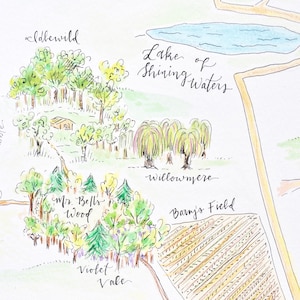 Idlewild
Lake of
Shining Waters
Willowmere
Mr. Bell's
Wood
Barry's Field
Violet
Vale